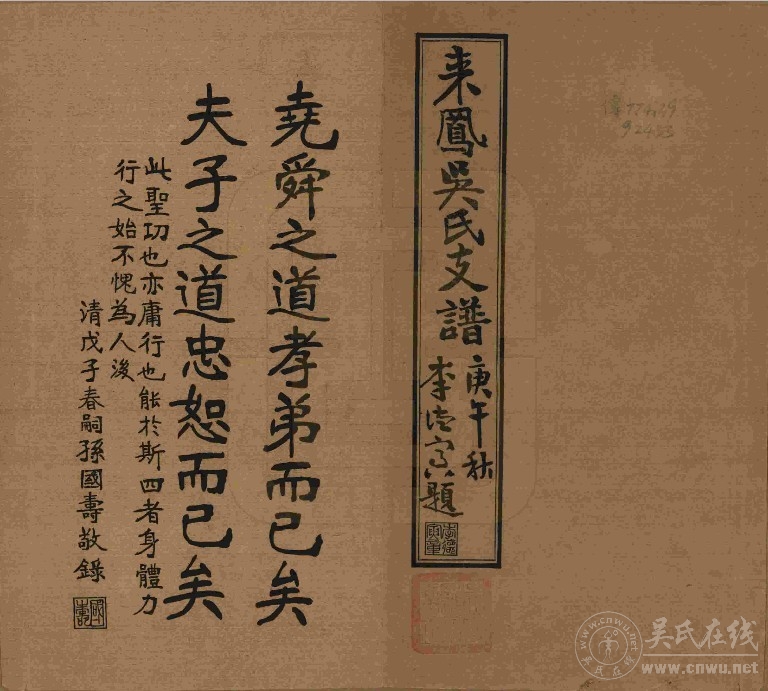 来鳳吳氏支譜
庚午秋
李
題
堯舜之道孝弟而已矣
夫子之道忠恕而已矣
此聖功也亦庸行也能於斯四者身體力
行之始不愧為人後
清戊子春嗣孫國壽敬錄
國壽
吴氏在线
www.cnwu.net